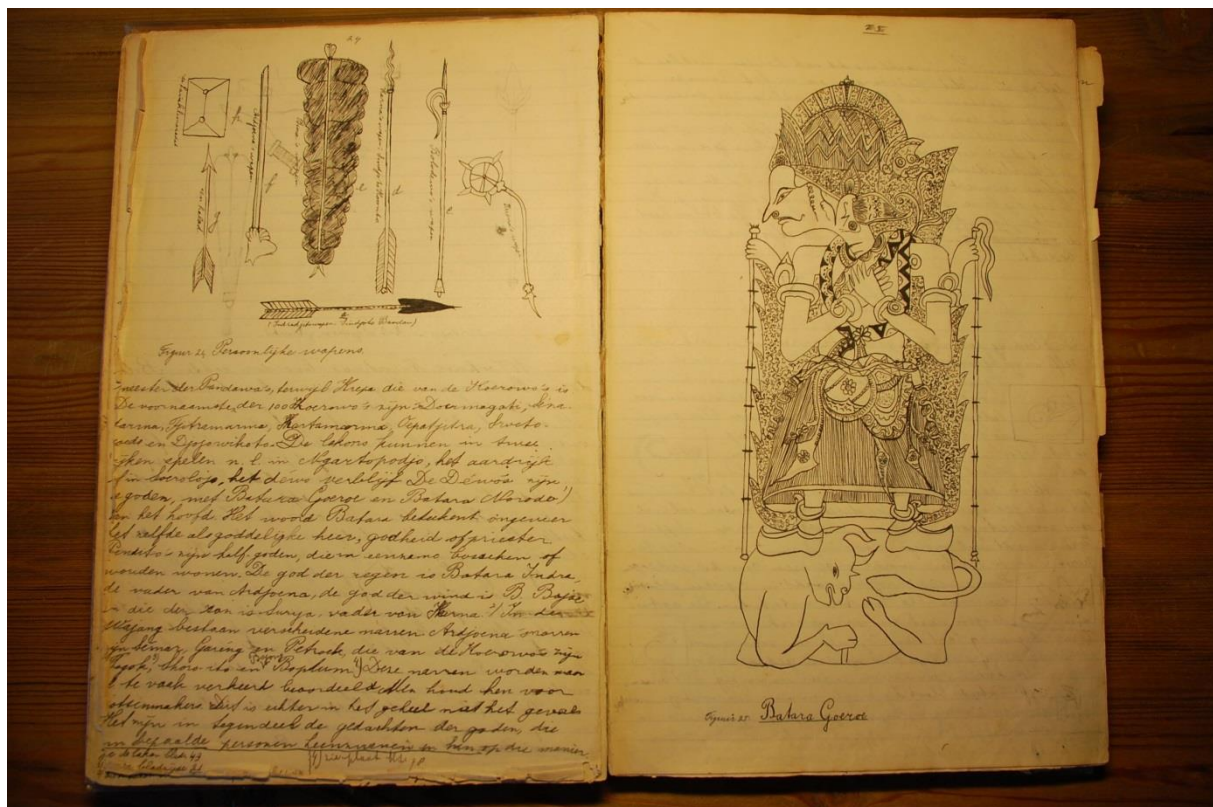 24
Figuur 24 Persoonlijke wapens.
meester der Pandawa's, terwijl Krepa die van de Koerowo's is
De voornaamste der 100 Koerowo's zijn: Doermagati,
en Djojowikoto. De lakons kunnen in twee
rijken spelen n.l. in Ngartopodjo, het aardrijk
in Soerolojo, het dewo verblijf. De Déwo's zijn
goden, met Batara Goeroe en Batara Norodo
aan het hoofd. Het woord Batara beteekent ongeveer
het zelfde als goddelijke heer, godheid of priester
Pendito's zijn half-goden, die in eenzame bosschen of
wouden wonen. De god der regen is Batara Indra,
de vader van Ardjoena, de god der wind is B. Bajoe
die der zon is Surja, vader van Karna. 2) In der
Wajang bestaan verscheidene narren. Ardjoena's narren
zijn Semar, Gareng en Petroek, die van de Koerowo's zijn
Togok, en Deze narren worden maar
al te vaak verkeerd beoordeeld. Men houd hen voor
potsenmakers. Dit is echter in het geheel niet het geval.
Het zijn in tegendeel de gedachten der goden, die
in bepaalde personen en hen op die manier
Figuur 25. Batara Goeroe